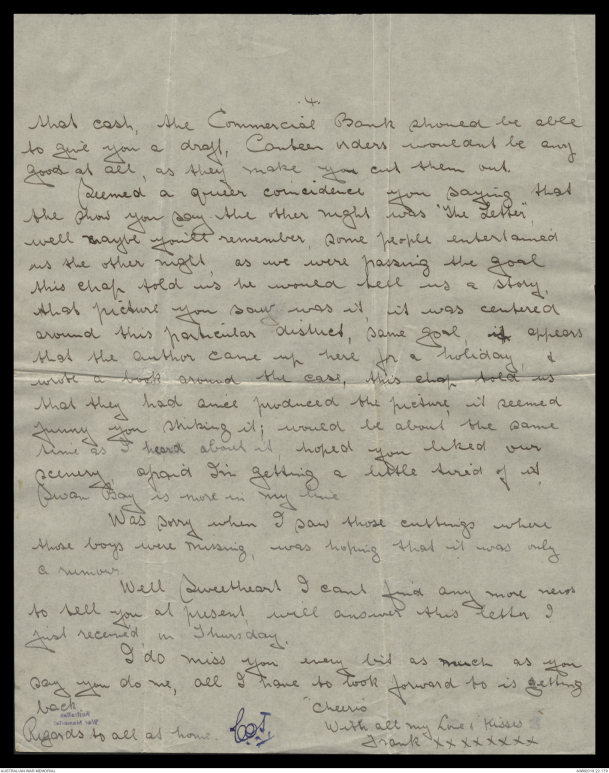 .4.
that cash, the Commercial Bank should be able
to give you a draft, Canteen orders wouldnt be any
good at all, as they make you cut them out.
Seemed a queer coincidence you saying that
the show you say the other night was "The Letter",
well maybe you'll remember, some people entertained
us the other night, as we were passing the goal
this chap told us he would tell us a story,
that picture you saw was it, it was centered
around this particular district, same goal, it appears
that the author came up here for a holiday, &
wrote a book around the case, this chap told us
that they had since produced the picture, it seemed
funny you striking it; would be about the same
time as I heard about it, hoped you liked our
scenery, afraid I'm getting a little tired of it,
Swan Bay is more in my line
Was sorry when I saw those cuttings where
those boys were missing, was hoping that it was only
a rumour.
Well Sweetheart I cant find any more news
to tell you at present, will answer this letter I
just received, on Thursday.
I do miss you every bit as much as you
say you do me, all I have to look forward to is getting
back.
"Cheerio
With all my Love & Kisses
Regards to all at home.
Frank x x x x x x x x
Australian
War Memorial
AUSTRALIAN WAR MEMORIAL